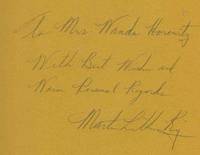 To Mrs Wanda Horowitz
With Best Wishes and
Warm Personal Regards
Martin Luther King